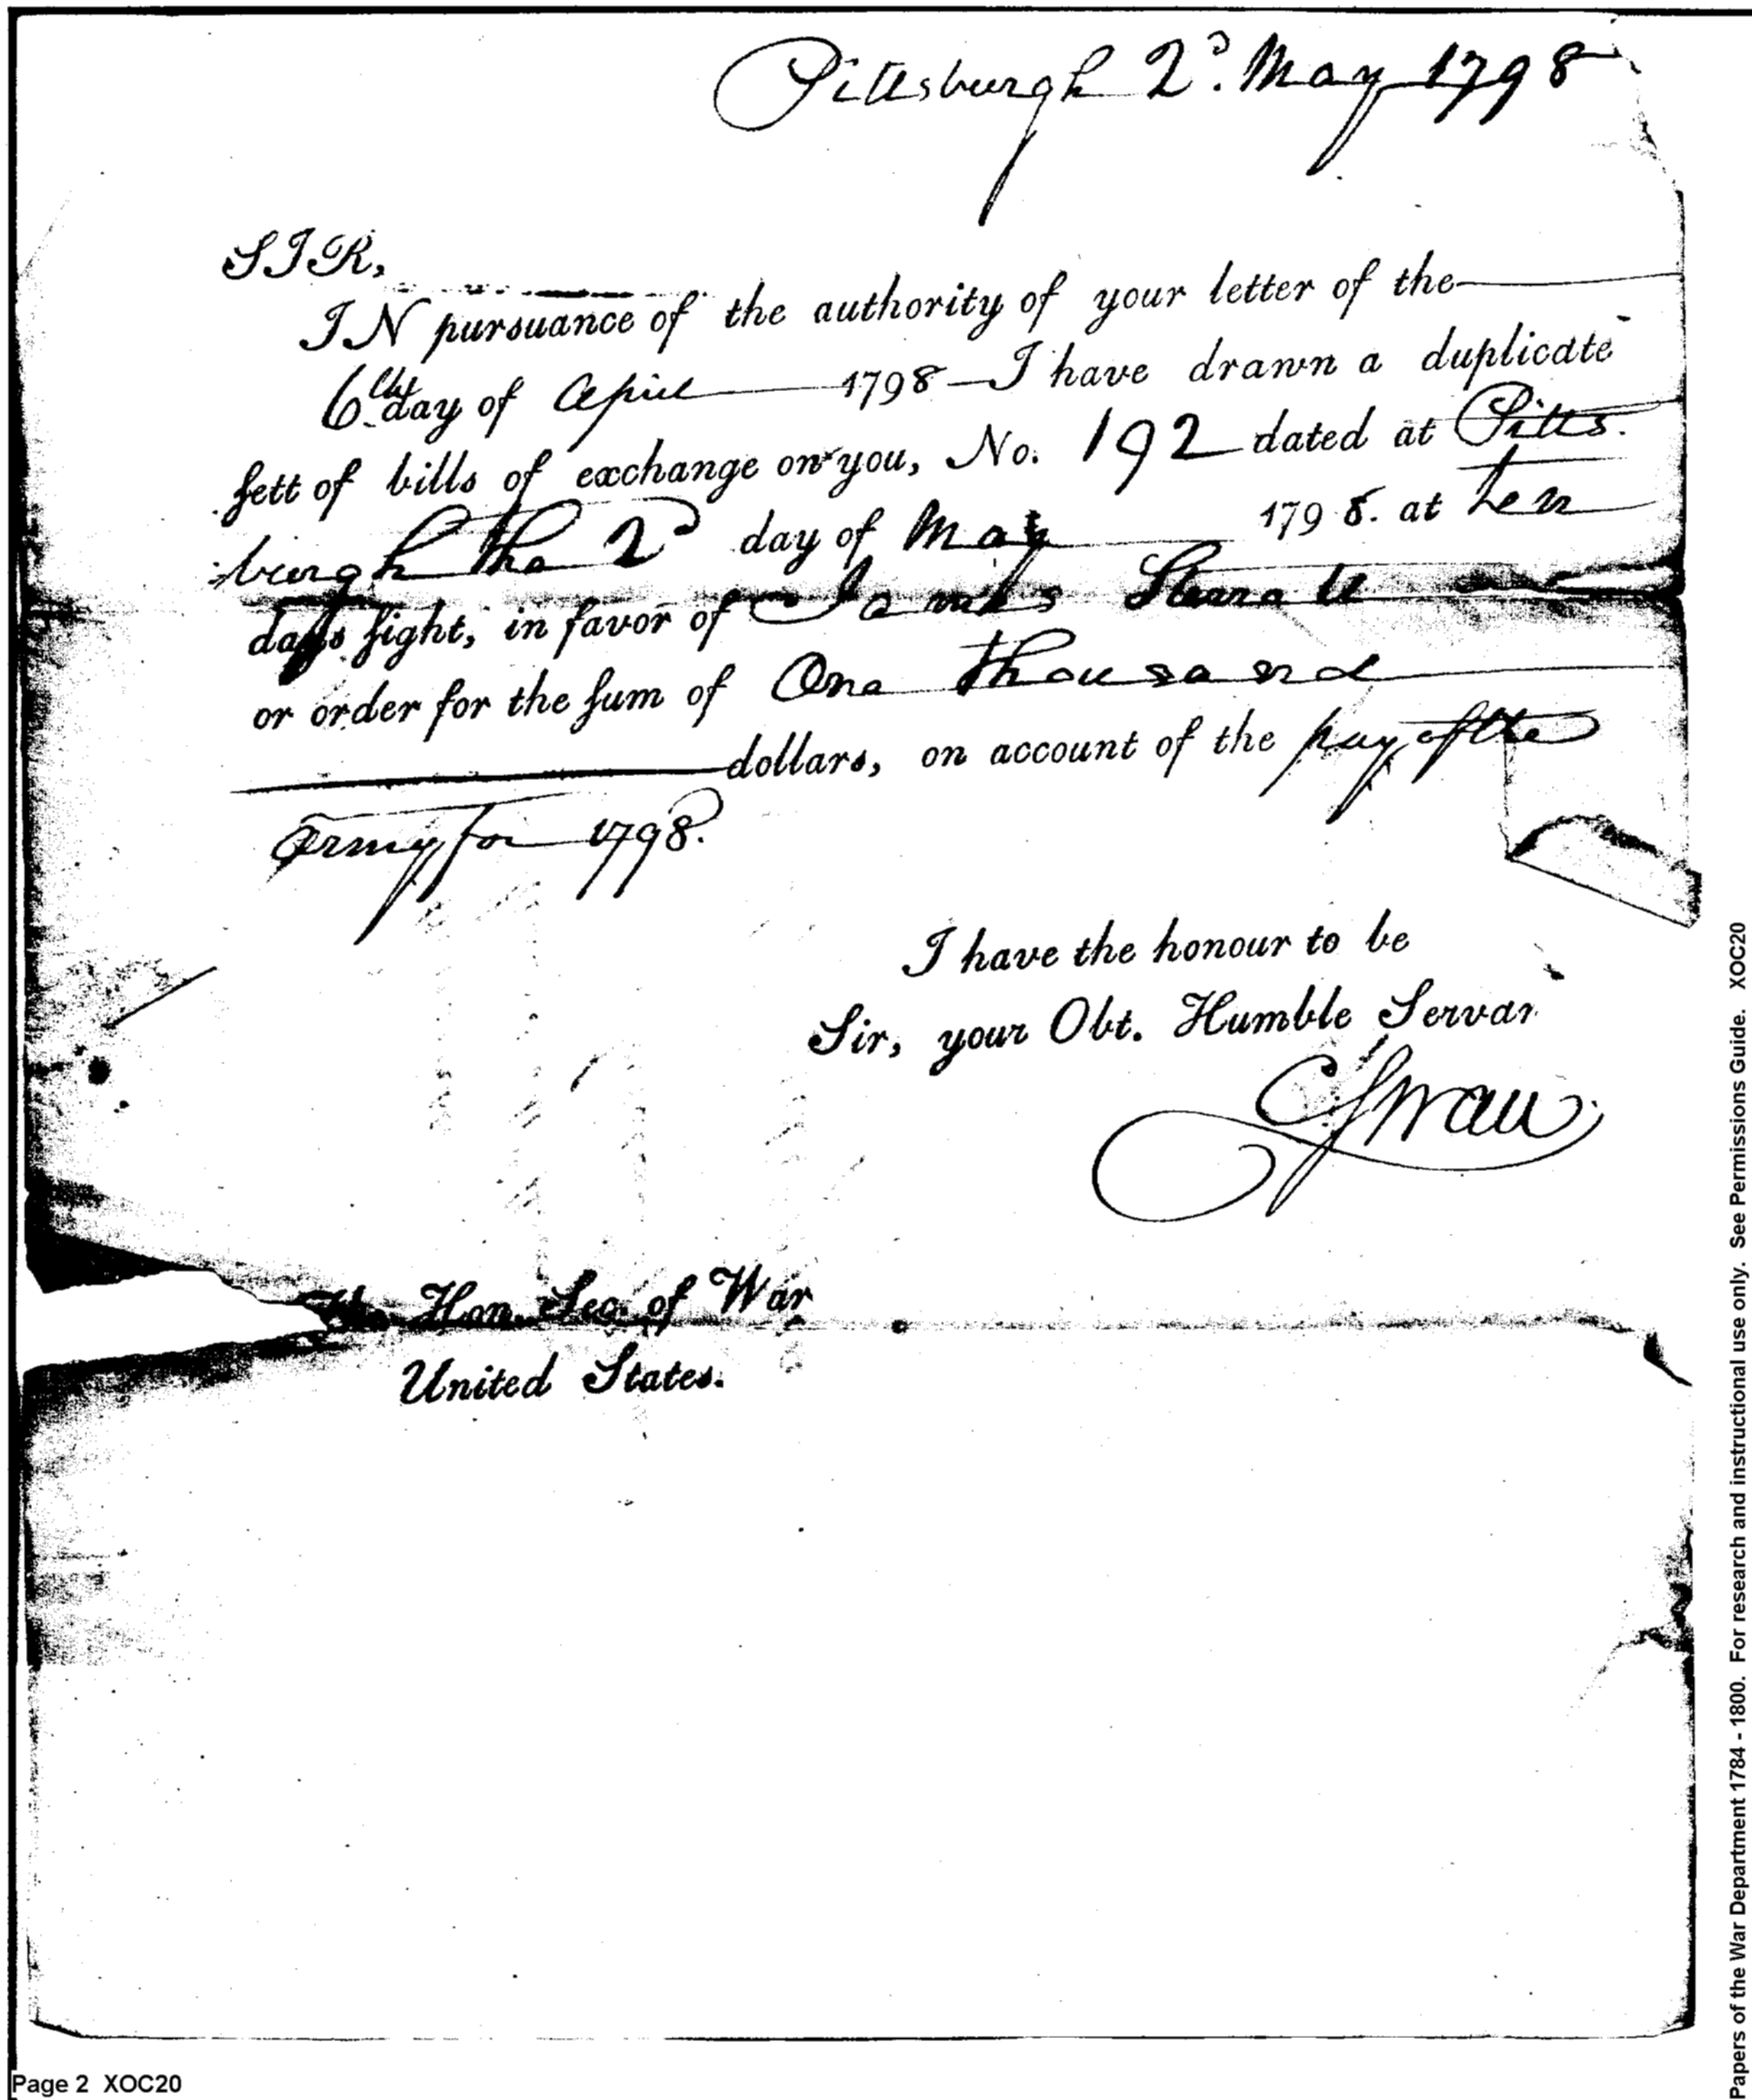 Pittsburgh 2d. May 1798
SIR,
IN pursuance of the authority of your letter of the
6th. day of April 1798 — I have drawn a duplicate
sett of bills of exchange on you, No. 192 dated at Pitts.
burgh the 2d day of May 1798. at ten
days sight, in favor of James
or order for the sum of One thousand
dollars, on account of the pay of the
Army for 1798.
I have the honour to be
Sir, your Obt. Humble Servan
CSwan
The Hon. Sec. of War
United States.
Page 2 XOC20
Papers of the War Department 1784 - 1800. For research and instructional use only. See Permissions Guide. XOC20